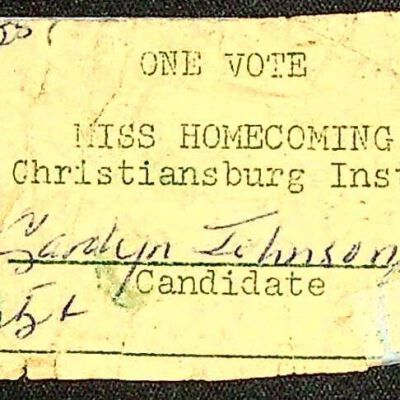 ONE VOTE
MISS HOMECOMING
Christiansburg Inst
Carolyn Johnson
Candidate